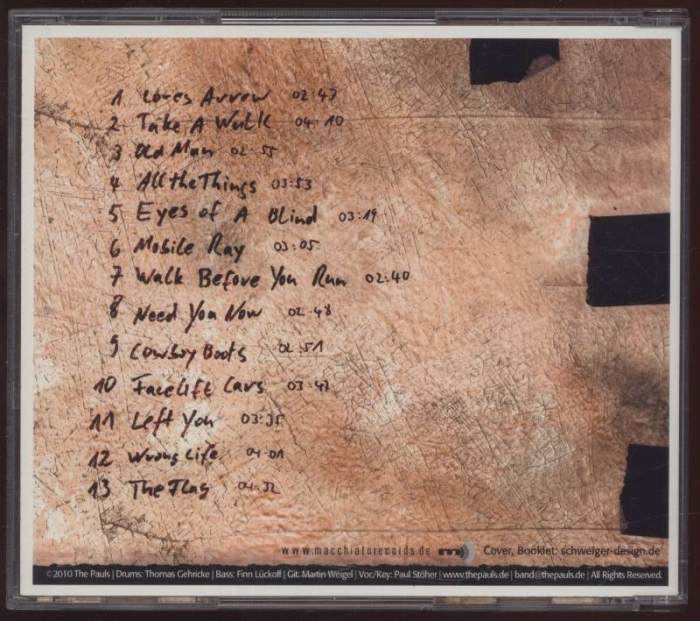 1 Loves Arrow 02:47
2 Take A Walk 04:10
3 Old Man 02:55
4 All the Things 03:53
5 Eyes of A Blind 03:19
6 Mobile Ray 03:05
7 Walk Before You Run 02:40
8 Need You Now 02:48
9 Cowboy Boots 02:51
10 Facelift Cars 03:43
11 Left You 03:35
12 Wrong Life 04:01
13 The Flag 04:32
www.macchiatorecords.de Cover, Booklet: schweiger-design.de
©2010 The Pauls | Drums: Thomas Gehricke | Bass: Finn Lückoff | Git: Martin Weigel | Voc/Key: Paul Stöher | www.thepauls.de | band@thepauls.de | All Rights Reserved.